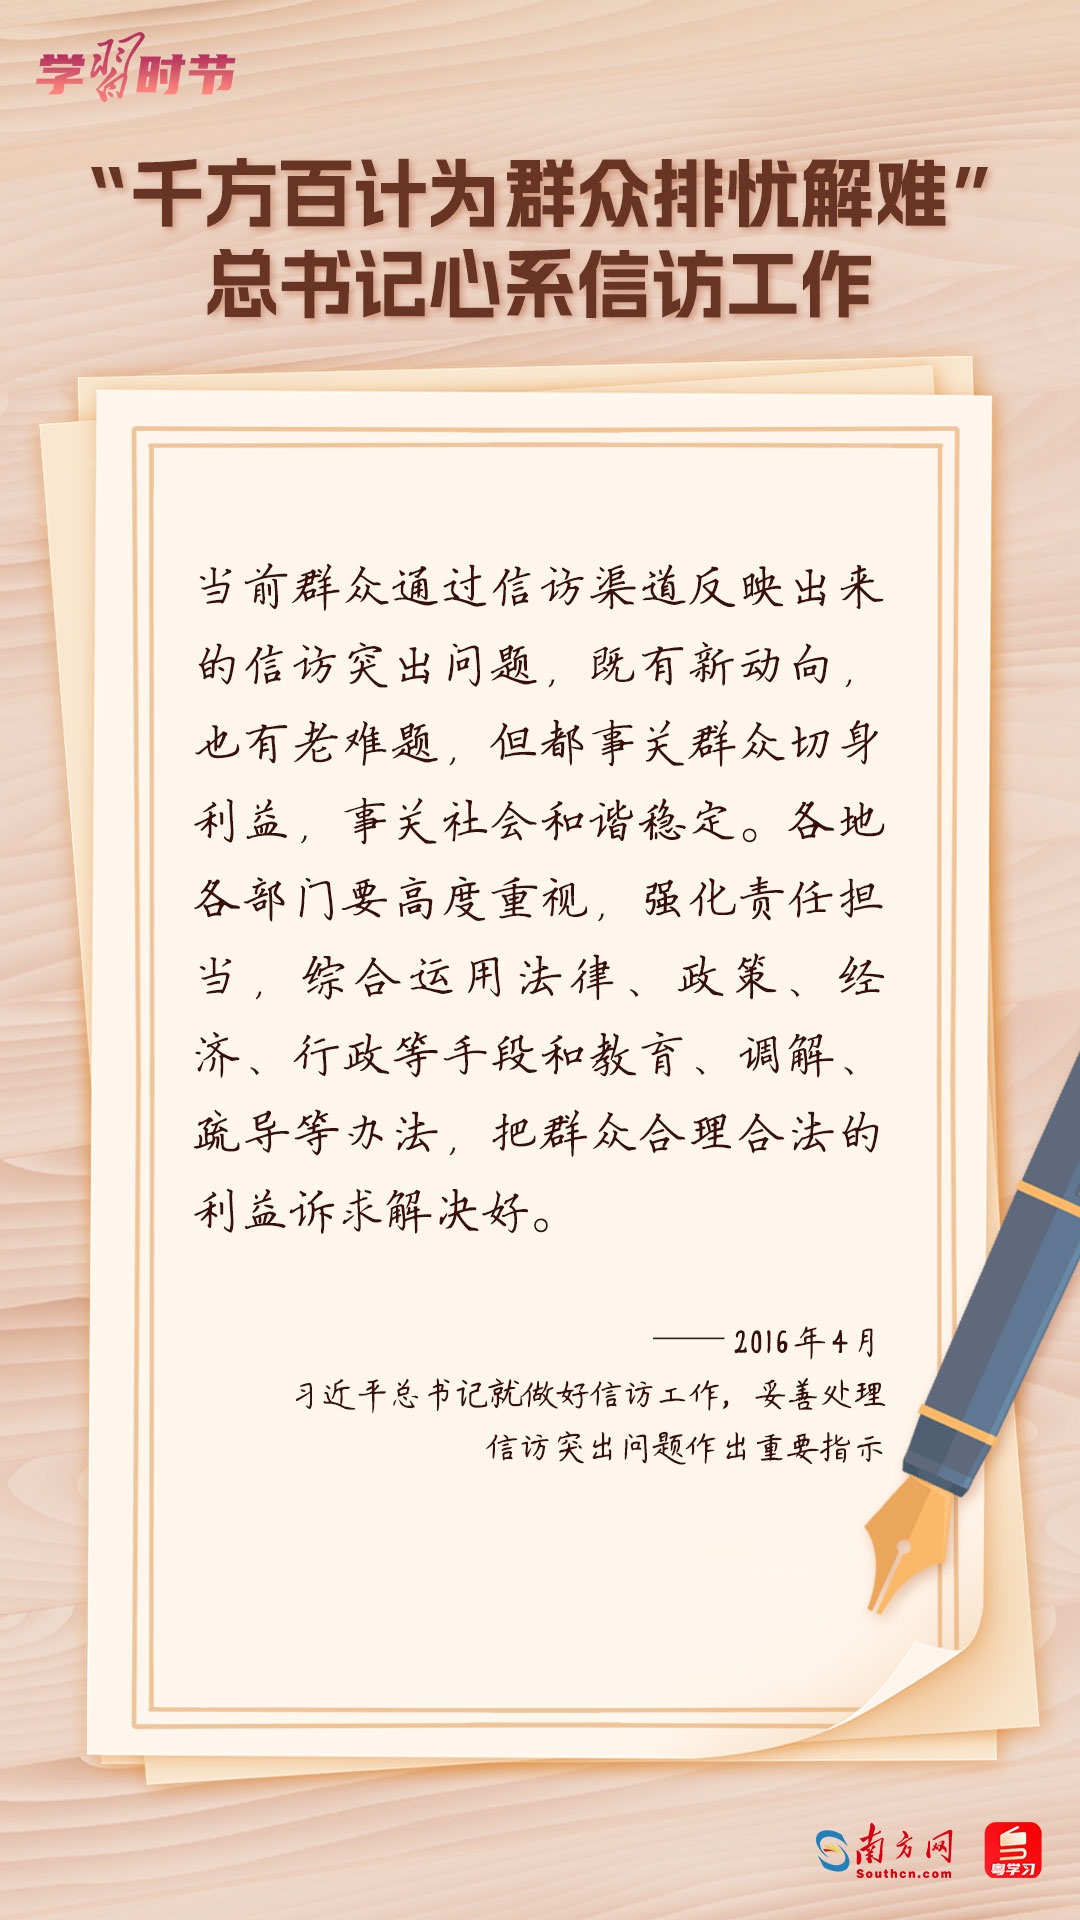 学习时节
“千方百计为群众排忧解难”
总书记心系信访工作
当前群众通过信访渠道反映出来
的信访突出问题，既有新动向，
也有老难题，但都事关群众切身
利益，事关社会和谐稳定。各地
各部门要高度重视，强化责任担
当，综合运用法律、政策、经
济、行政等手段和教育、调解、
疏导等办法，把群众合理合法的
利益诉求解决好。
——2016年4月
习近平总书记就做好信访工作，妥善处理
信访突出问题作出重要指示
南方网
Southcn.com
粤学习